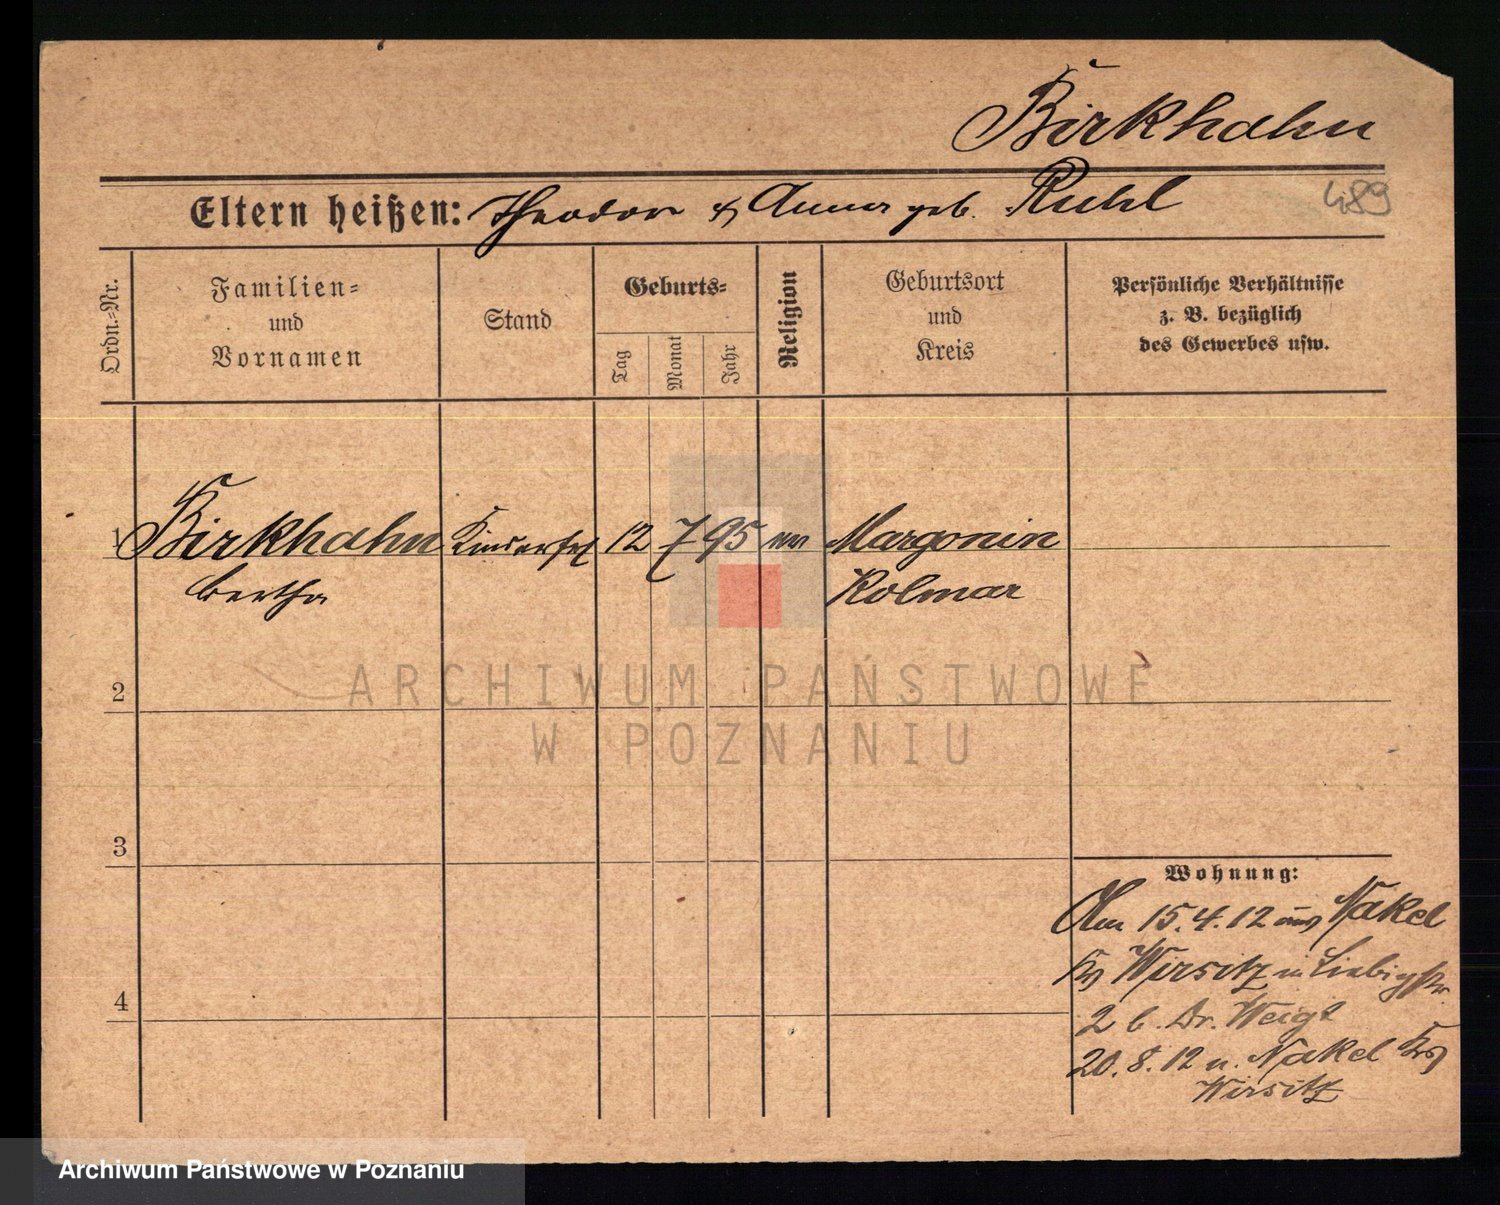 Birkhahn
Eltern heißen: Theodor & Anna geb. Ruhl
489
Ordn.-Nr.
Familien-
und
Vornamen
Stand
Geburts-
Tag
Monat
Jahr
Religion
Geburtsort
und
Kreis
Persönliche Verhältnisse
z. B. bezüglich
des Gewerbes usw.
1 Birkhahn Kinderfrl 12 7 95 ev Margonin
Bertha Kolmar
2
ARCHIWUM PAŃSTWOWE
W POZNANIU
3
Wohnung:
Am 15.4.12 aus Nakel
Krs Wirsitz in Liebigstr.
4
2 b. Dr. Weigt
20.8.12 n. Nakel Krs
Wirsitz
Archiwum Państwowe w Poznaniu